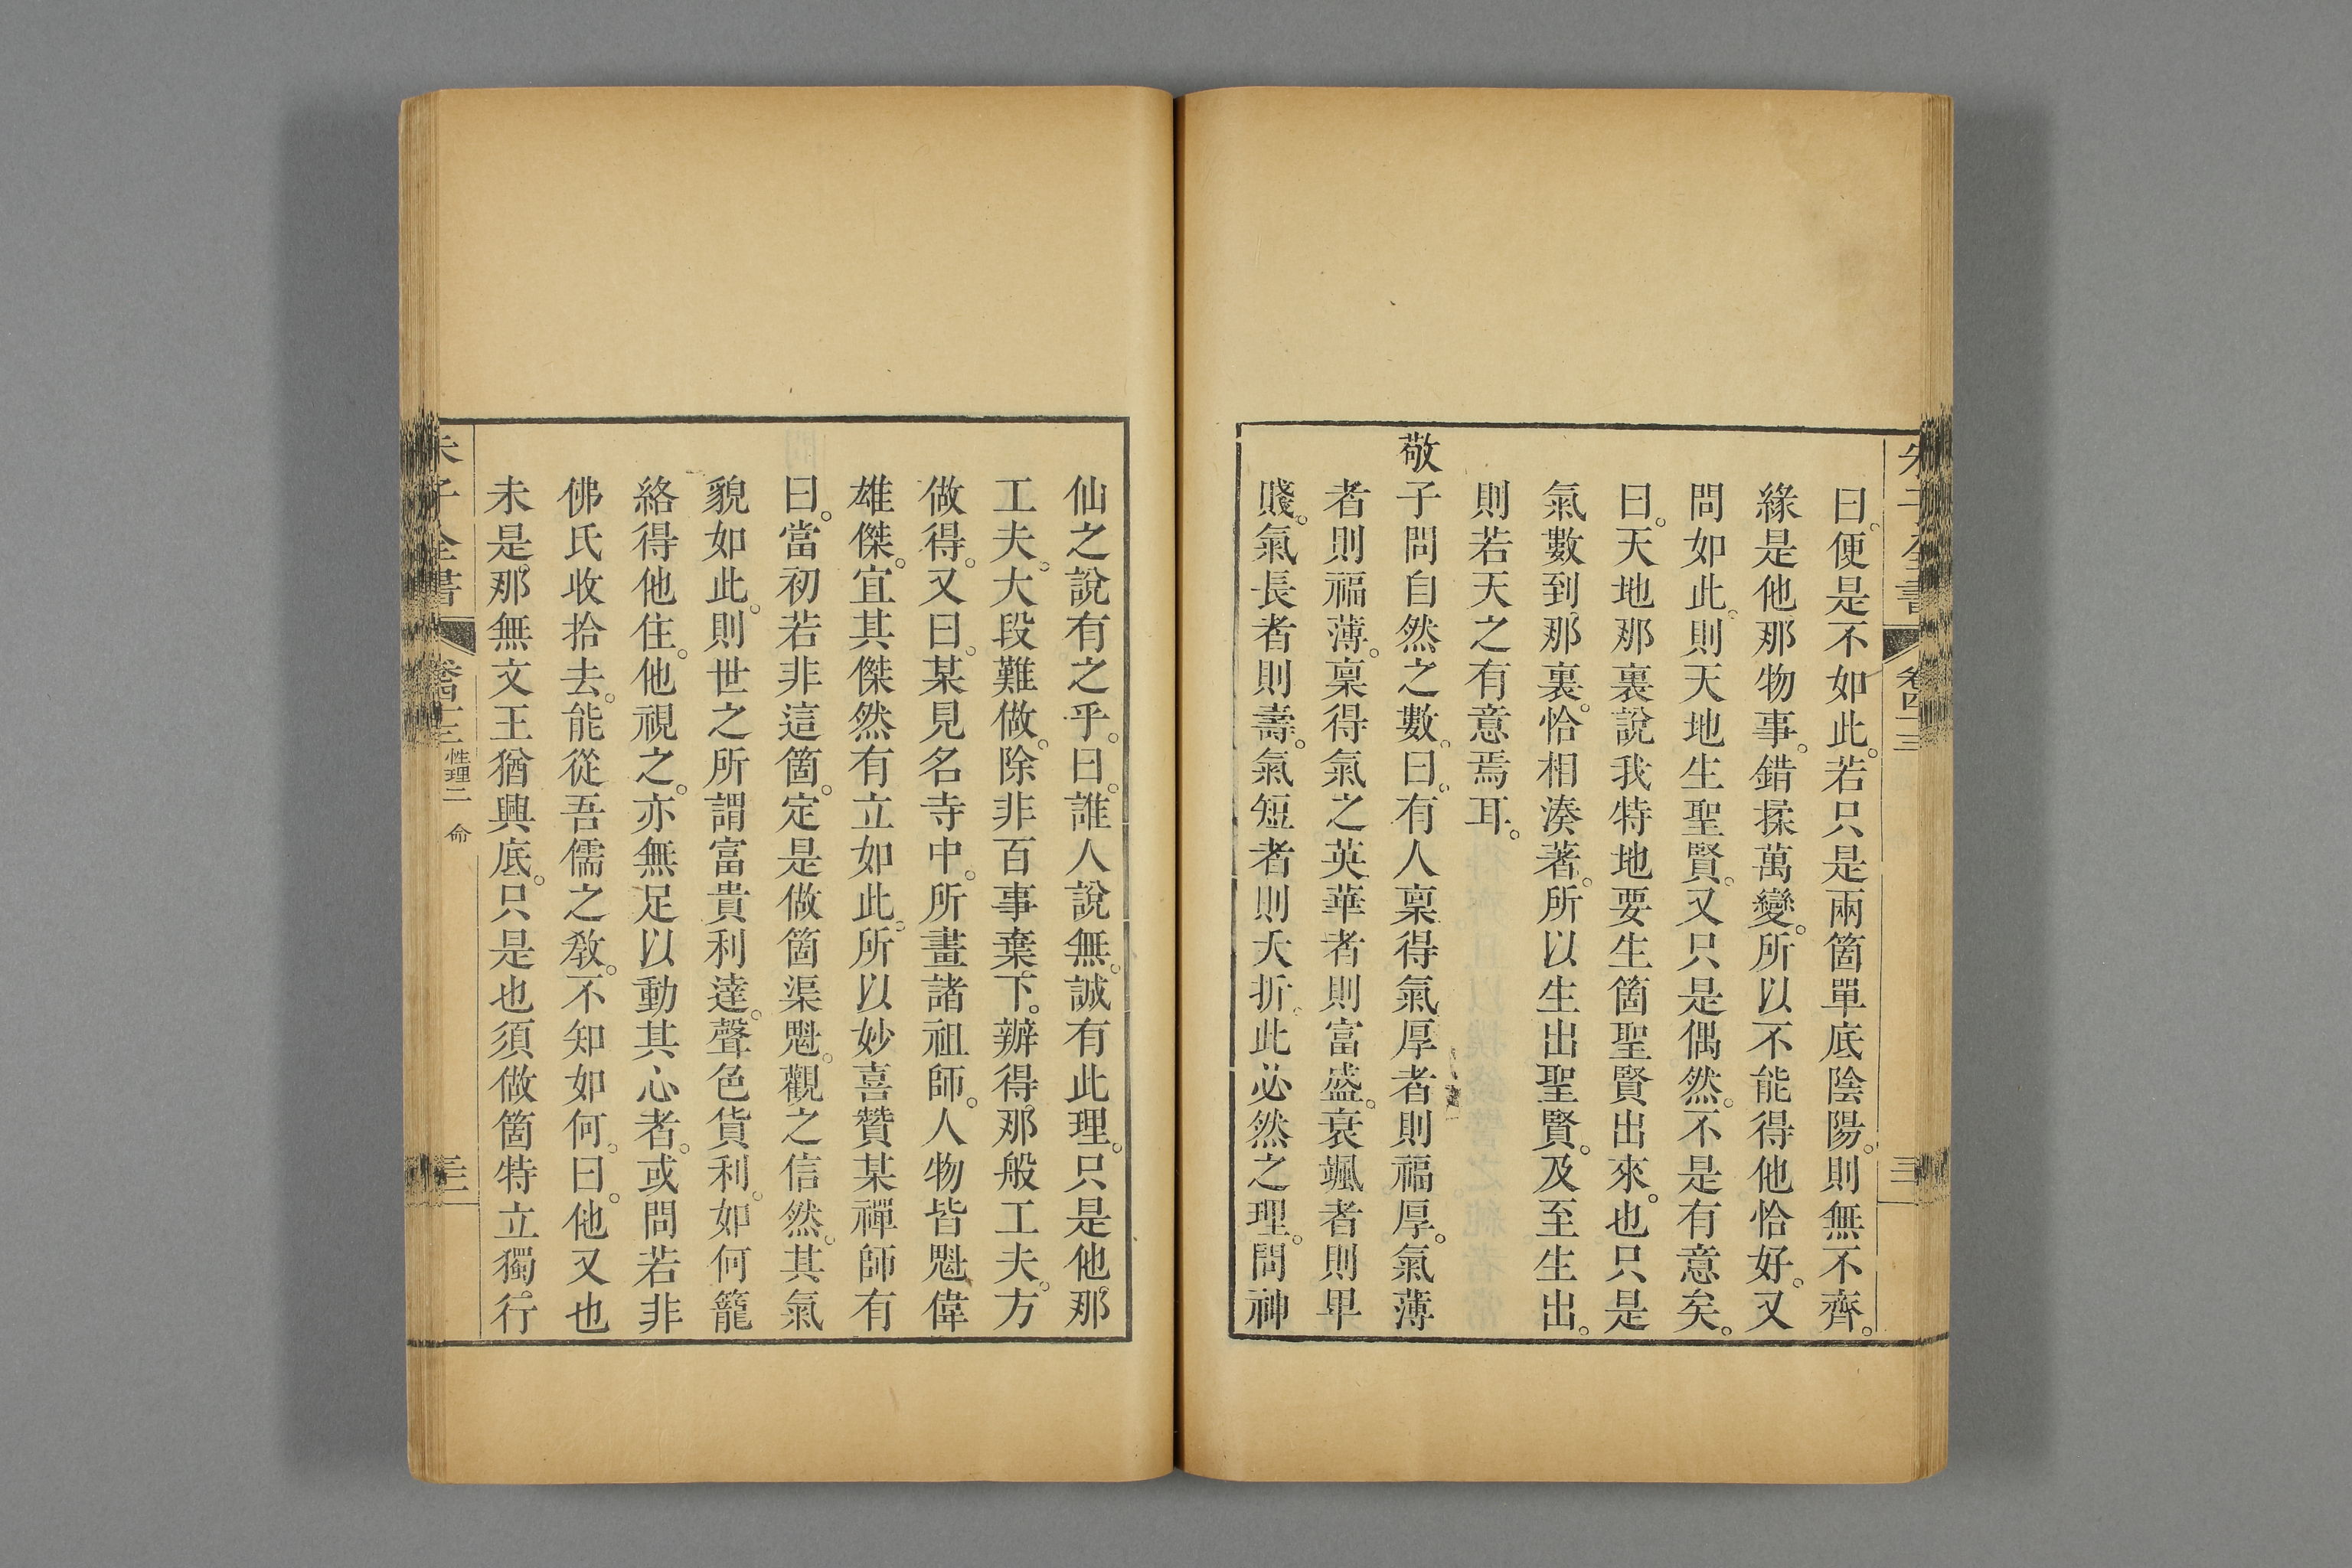 朱子全書 卷四十三
曰。便是不如此。若只是兩箇單底陰陽。則無不齊。
緣是他那物事。錯揉萬變。所以不能得他恰好。又
問如此。則天地生聖賢。又只是偶然。不是有意矣。
曰。天地那裏說我特地要生箇聖賢出來。也只是
氣數到那裏。恰相湊著。所以生出聖賢。及至生出。
則若天之有意焉耳。
敬子問自然之數。曰。有人稟得氣厚者則福厚。氣薄
者則福薄。稟得氣之英華者則富盛。衰颯者則卑
賤。氣長者則壽。氣短者則夭折。此必然之理。問神
仙之說有之乎。曰。誰人說無。誠有此理。只是他那
工夫。大段難做。除非百事棄下。辦得那般工夫。方
做得。又曰。某見名寺中。所畫諸祖師。人物皆魁偉
雄傑。宜其傑然有立如此。所以妙喜贊某禪師有
曰。當初若非這箇。定是做箇渠魁。觀之信然。其氣
貌如此。則世之所謂富貴利達。聲色貨利。如何籠
絡得他住。他視之。亦無足以動其心者。或問若非
佛氏收拾去。能從吾儒之教。不知如何。曰。他又也
未是那無文王猶興底。只是也須做箇特立獨行
朱子全書 性理二 命